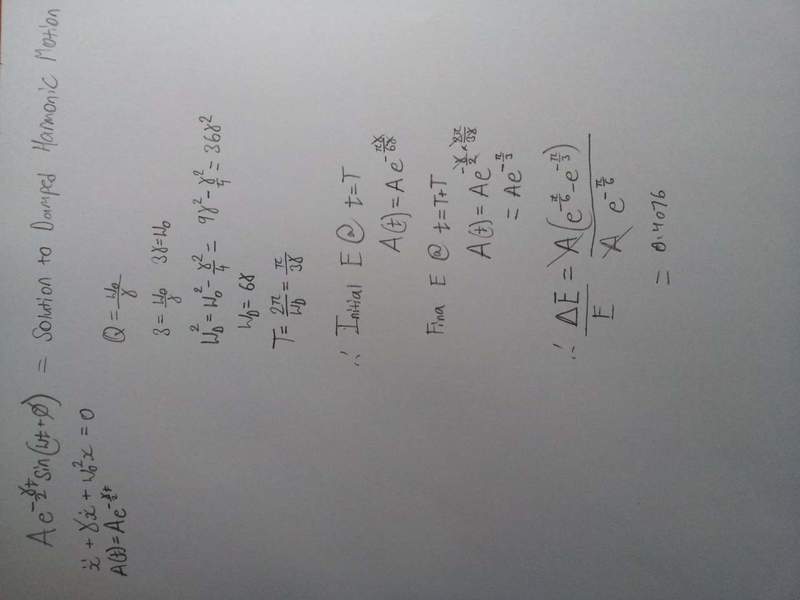 Ae^{-γt/2} sin(ωt+φ) = Solution to Damped Harmonic Motion
ẍ + γẋ + ω₀²x = 0
A(t) = Ae^{-γt/2}
Q = ω₀/γ
3 = ω₀/γ 3γ = ω₀
ω_D² = ω₀² - γ²/4 = 9γ² - γ²/4 = 36γ²
ω_D = 6γ
T = 2π/ω_D = π/3γ
∴ Initial E @ t=T
A(t) = Ae^{-πγ/6γ}
Fina E @ t=T+T
A(t) = Ae^{-γ/2 × 2π/3γ}
= Ae^{-π/3}
∴ ΔE/E = A(e^{-π/6} - e^{-π/3}) / A e^{-π/6}
= 0.4076